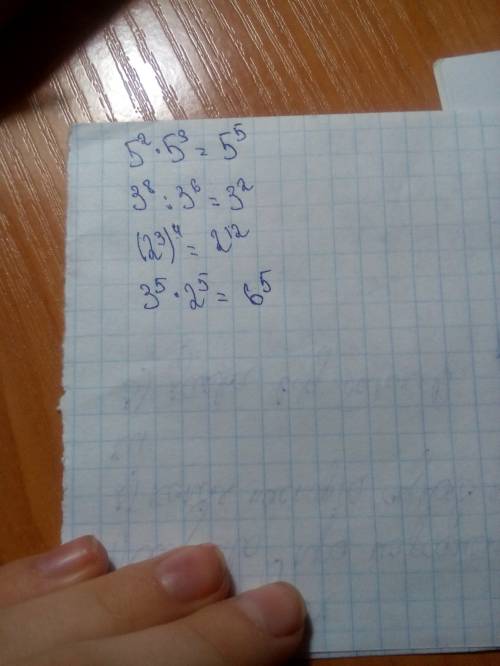 5² · 5³ = 5⁵
3⁸ : 3⁶ = 3²
(2³)⁴ = 2¹²
3⁵ · 2⁵ = 6⁵